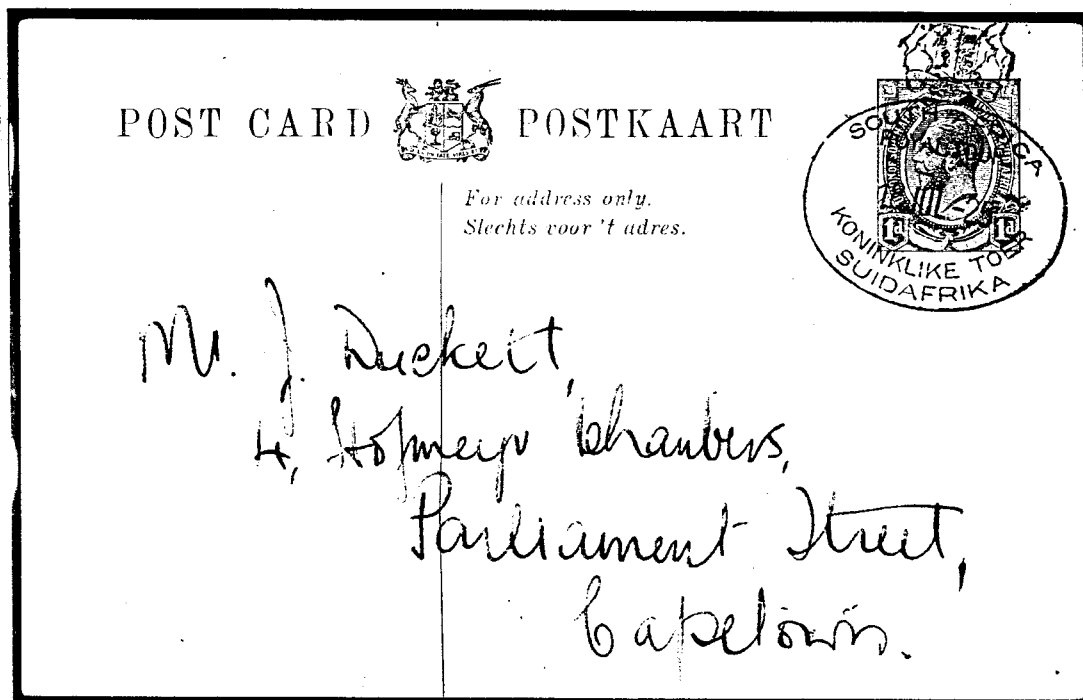 POST CARD POSTKAART
For address only.
Slechts voor 't adres.
SOUTH AFRICA
KONINKLIKE TOER
SUIDAFRIKA
1D 1D
Mr. J. Duckett,
4, Hofmeyr Chambers,
Parliament Street,
Capetown.